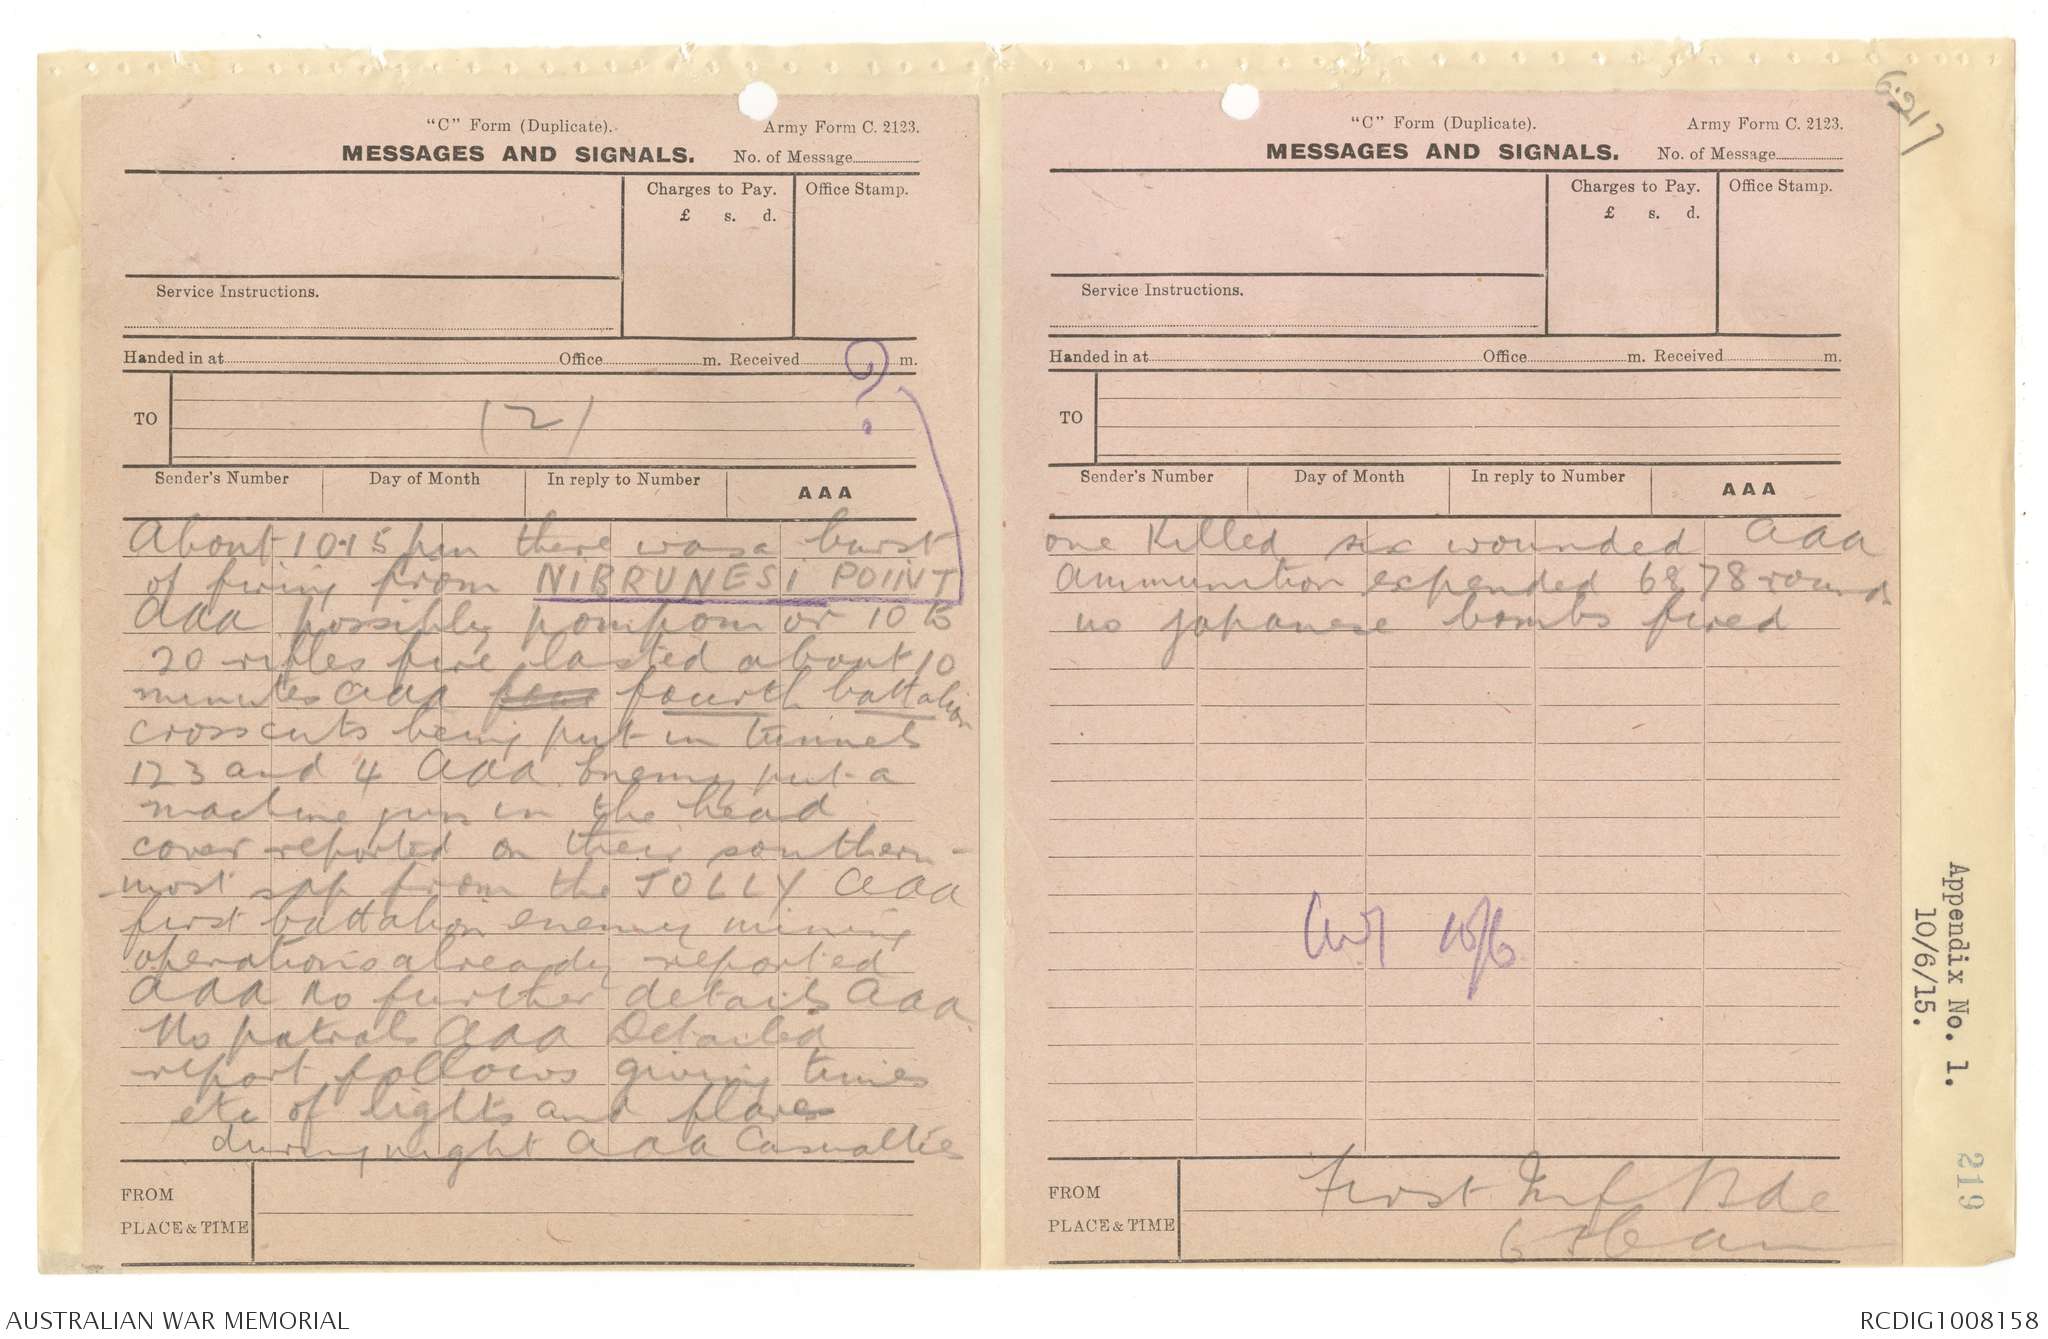 "C" Form (Duplicate).
Army Form C. 2123.
MESSAGES AND SIGNALS.
No. of Message
Charges to Pay.
£ s. d.
Office Stamp.
Service Instructions.
Handed in at Office m. Received m.
?
TO
(2)
Sender's Number
Day of Month
In reply to Number
AAA
About 10.15 pm there was a burst
of firing from NIBRUNESI POINT
AAA possibly pompom or 10 to
20 rifles fire lasted about 10
minutes AAA fourth battalion
crosscuts being put in tunnels
123 and 4 AAA Enemy put a
machine gun in the head
cover reported on their southern-
-most sap from the JOLLY AAA
first battalion enemy mining
operations already reported
AAA no further details AAA
No patrols AAA Detailed
report follows giving times
etc of lights and flares
during night AAA Casualties
FROM
PLACE & TIME
"C" Form (Duplicate).
Army Form C. 2123.
MESSAGES AND SIGNALS.
No. of Message
Charges to Pay.
£ s. d.
Office Stamp.
Service Instructions.
Handed in at Office m. Received m.
TO
Sender's Number
Day of Month
In reply to Number
AAA
one Killed six wounded AAA
Ammunition expended 6878 rounds
no japanese bombs fired
10/6
FROM
First Inf Bde
PLACE & TIME
am
Appendix No. 1.
10/6/15.
219
AUSTRALIAN WAR MEMORIAL
RCDIG1008158